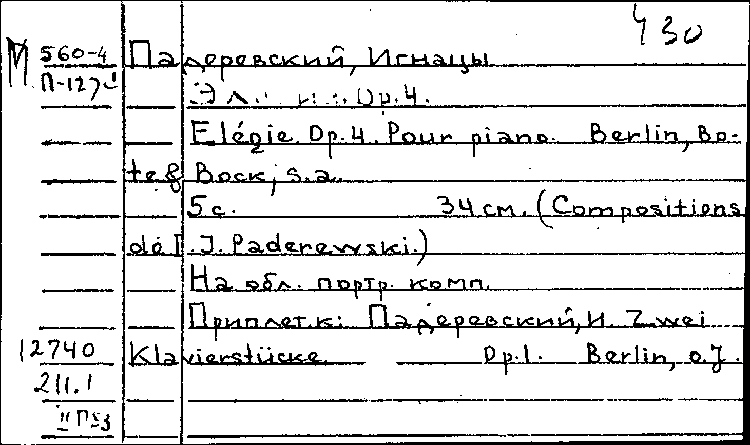 430
М 560-4 Падеревский, Игнацы
П-127
Op.4.
Elégie. Op.4. Pour piano. Berlin, Bo-
te & Bock, s.a.
5 с. 34 см. (Compositions
de I.J. Paderewski.)
На обл. портр. комп.
Приплет. к: Падеревский, И. Zwei
12740 Klavierstücke. Op.1. Berlin, o.J.
211.1